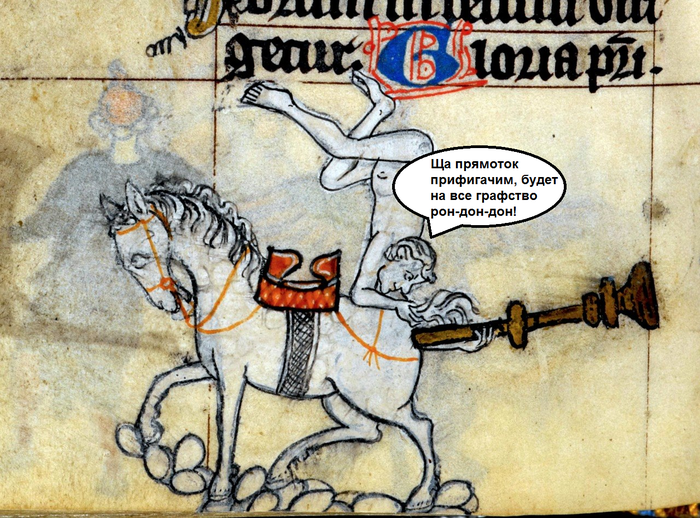 getur. Gloria pri.
Ща прямоток
прифигачим, будет
на все графство
рон-дон-дон!